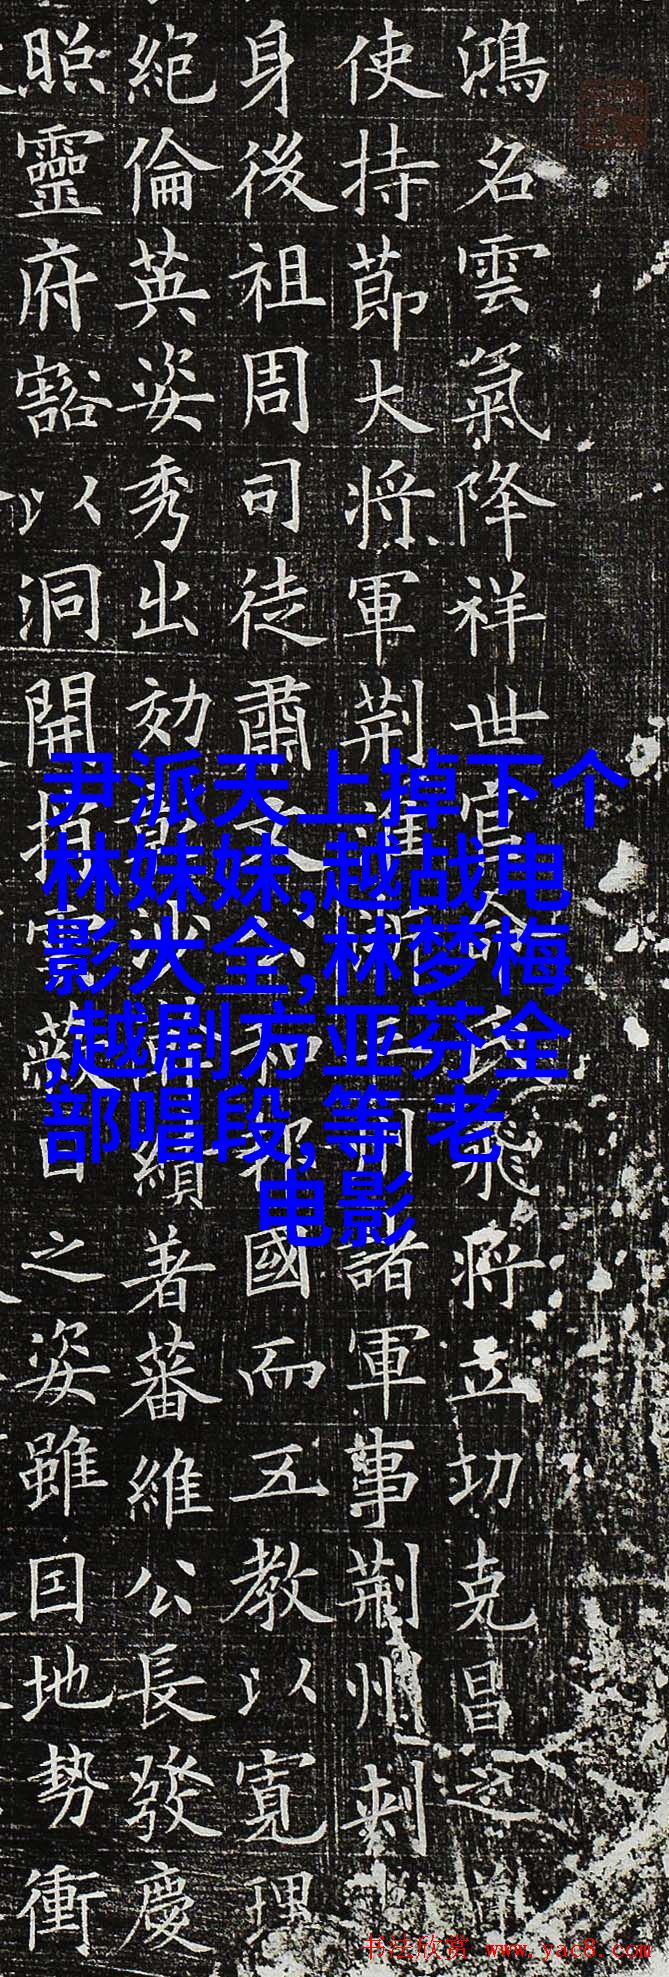 鴻名雲氣降祥世官命飛將立功克昌之
使持節大將軍荆淮平州諸軍事荆州刺
身後祖周司徒肅文和邦國而五教以寬理
絶倫英姿秀出効績著蕃維公長發慶
照靈府豁以洞開指雲蔽日之姿雖国地势衝
尹派天上掉下个
林妹妹,越战电
影大全,林梦梅
,越剧方亚芬全
部唱段,等 老
电影
书法欣赏 www.yac8.com